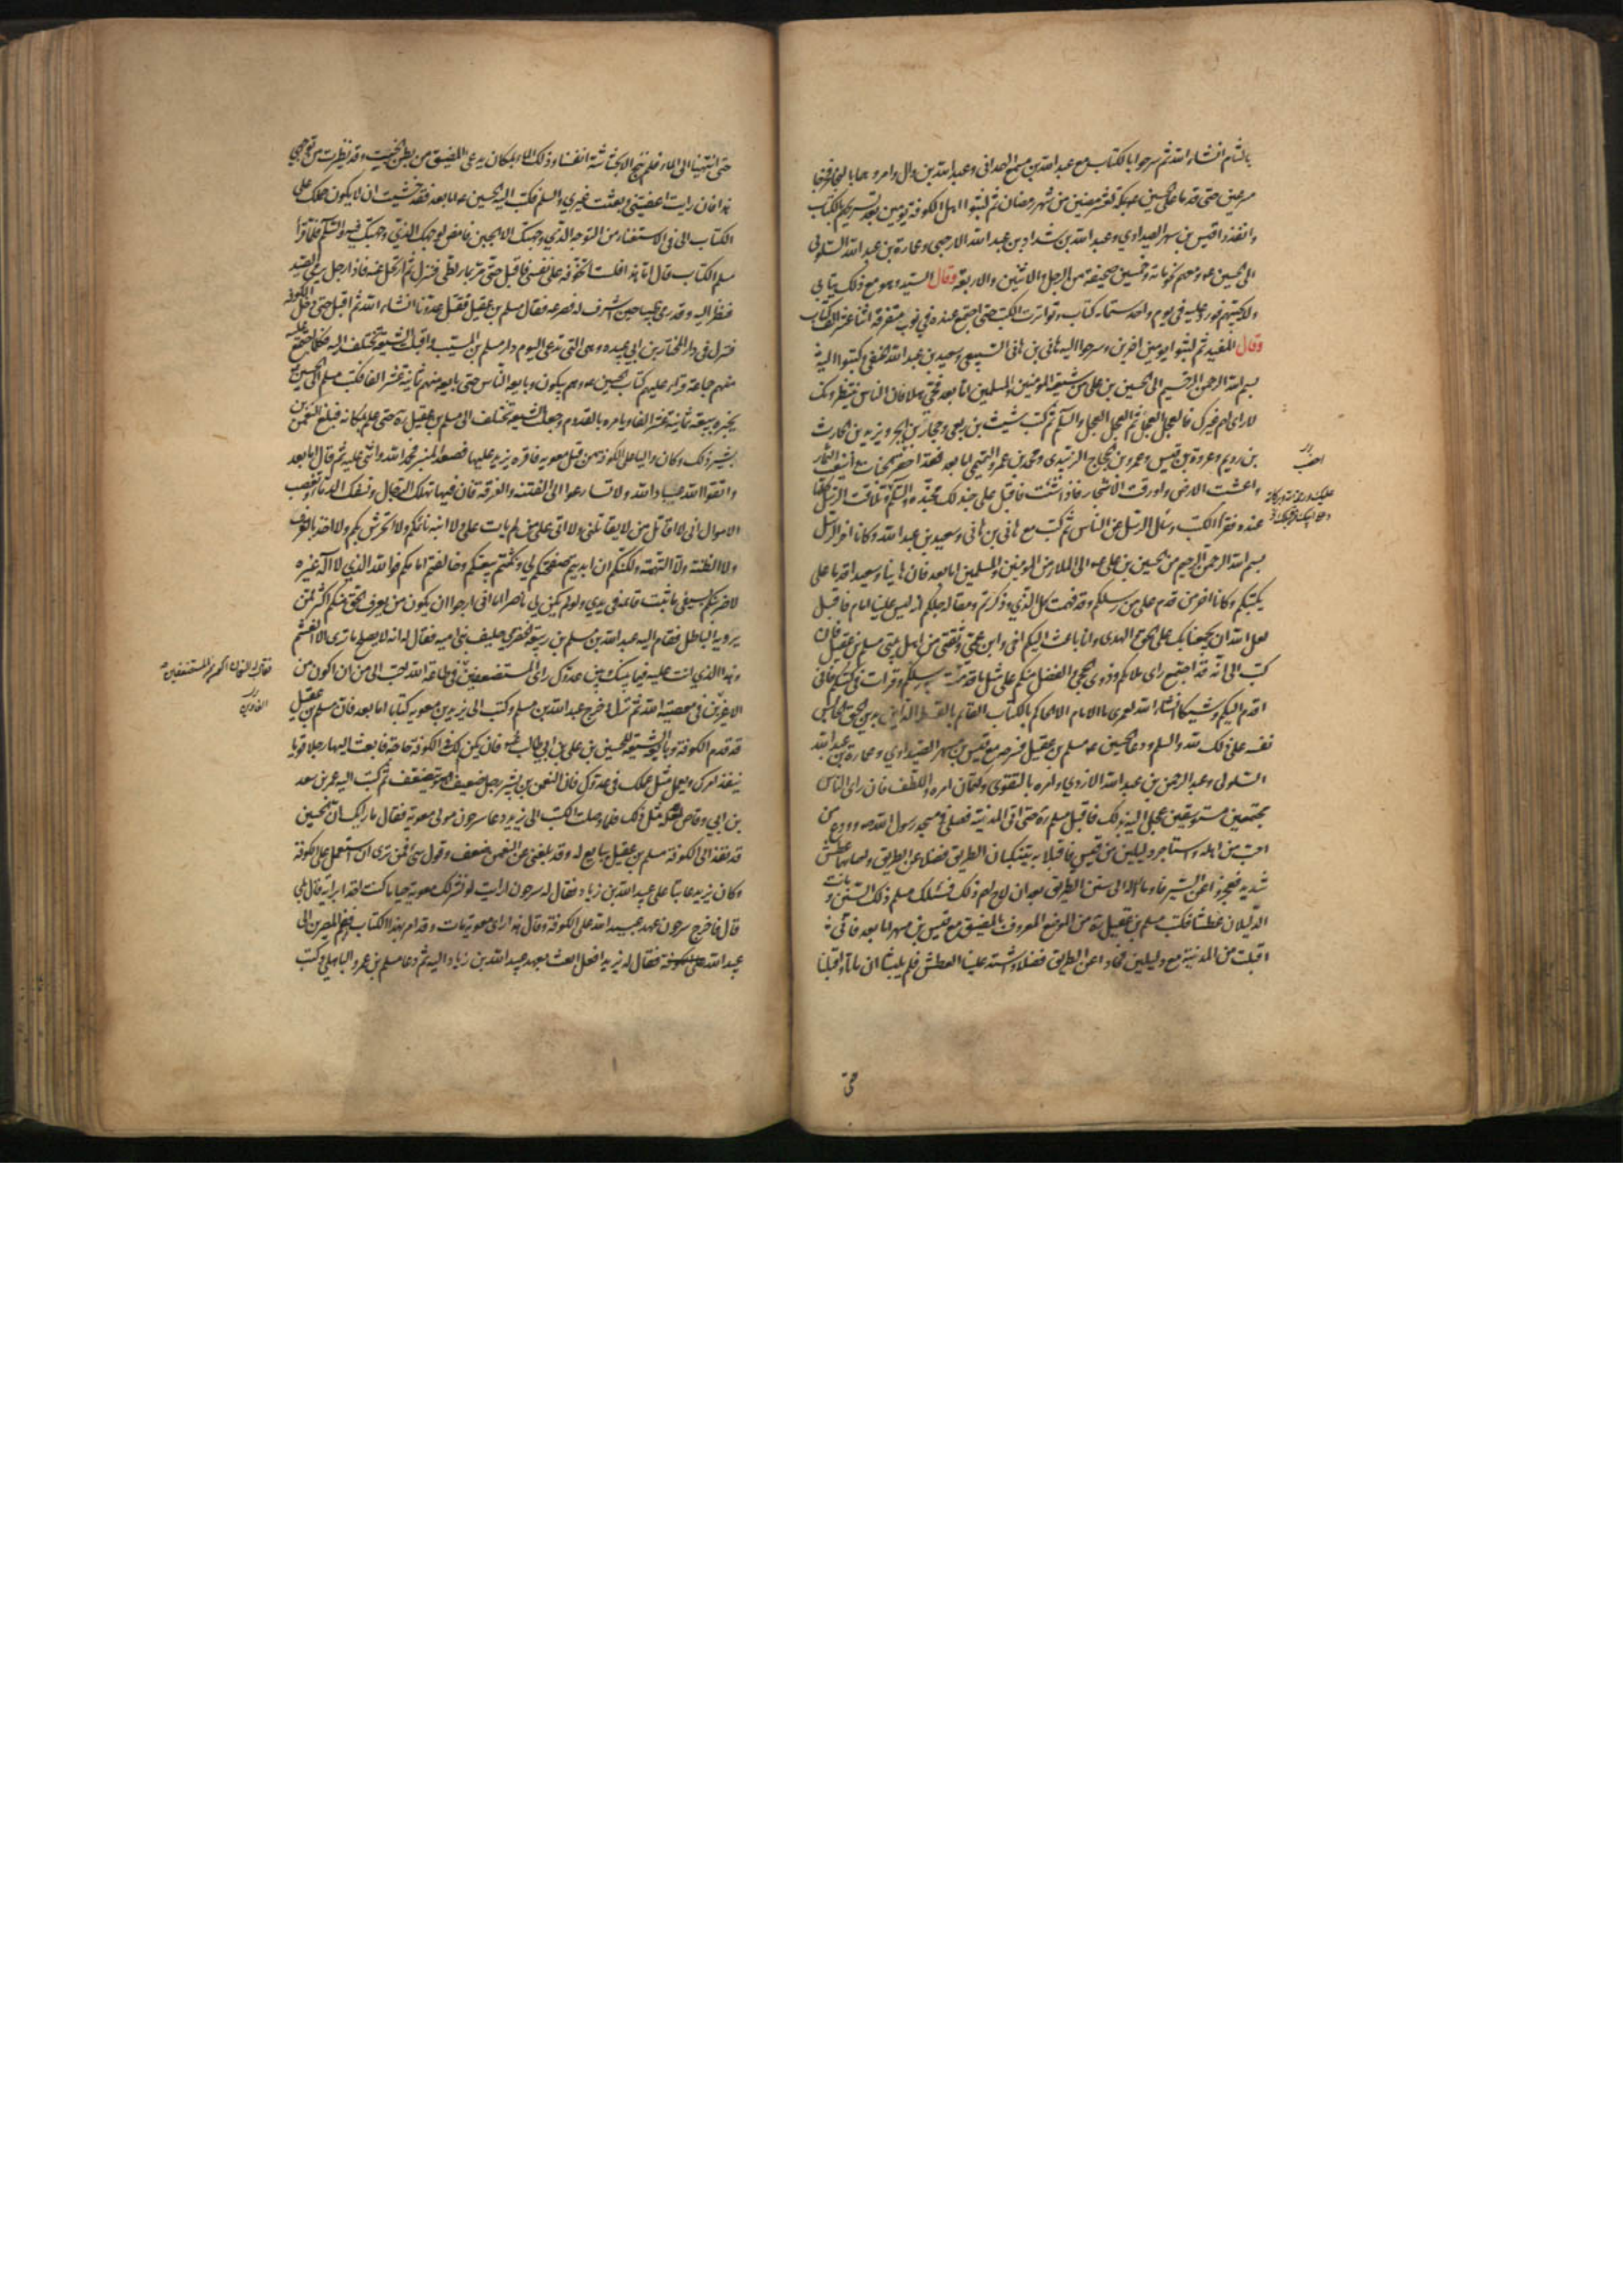 بالشام انشاء الله ثم سرحوا بالكتاب مع عبد الله بن مسمع الهمداني وعبد الله بن وال وامروهما بالنجا فخرجا
مسرعين حتى قدما على الحسين عه بمكة لعشر مضين من شهر رمضان ثم لبثوا اهل الكوفة يومين بعد تسريحهم بالكتاب
وانفذوا قيس بن مسهر الصيداوي وعبد الله بن شداد بن عبد الله الارحبي وعمارة بن عبد الله السلولي
الى الحسين عه ومعهم نحو مائة وخمسين صحيفة من الرجل والاثنين والاربعة وقال السيد وهو مع ذلك يتابى
ولا يجيبهم فورد عليه في يوم واحد ستمائة كتاب وتواترت الكتب حتى اجتمع عنده في نوب متفرقة اثنا عشر الف كتاب
وقال المفيد ثم لبثوا يومين اخرين وسرحوا اليه هاني بن هاني السبيعي وسعيد بن عبد الله الحنفي وكتبوا اليه
بسم الله الرحمن الرحيم الى الحسين بن علي من شيعته المؤمنين والمسلمين اما بعد فحي هلا فان الناس ينتظرونك
لا راي لهم غيرك فالعجل العجل ثم العجل العجل والسلم ثم كتب شبث بن ربعي وحجار بن ابجر ويزيد بن الحارث
بن رويم وعروة بن قيس وعمرو بن الحجاج الزبيدي ومحمد بن عمرو التيمي اما بعد فقد اخضر الجناب واينعت الثمار
واعشبت الارض واورقت الاشجار فاذا شئت فاقبل على جند لك مجندة والسلم وتلاقت الرسل كلها
عنده فقرا الكتب وسئل الرسل عن الناس ثم كتب مع هاني بن هاني وسعيد بن عبد الله وكانا اخر الرسل
بسم الله الرحمن الرحيم من الحسين بن علي عه الى الملا من المومنين والمسلمين اما بعد فان هانيا وسعيدا قدما علي
بكتبكم وكانا اخر من قدم علي من رسلكم وقد فهمت كل الذي وذكرتم ومقالة جلكم انه ليس علينا امام فاقبل
لعل الله ان يجمعنا بك على الحق والهدى وانا باعث اليكم اخي وابن عمي وثقتي من اهل بيتي مسلم بن عقيل فان
كتب الى انه قد اجتمع راى ملاكم وذوي الحجى والفضل منكم على مثل ما قدمت به رسلكم وقرات في كتبكم فاني
اقدم اليكم وشيكا انشاء الله لعمري ما الامام الا الحاكم بالكتاب القائم بالقسط الداين بدين الحق الحابس
نفسه على ذلك لله والسلم ودعا الحسين عه مسلم بن عقيل فسرحه مع قيس بن مسهر الصيداوي وعمارة بن عبد الله
السلولي وعبد الرحمن بن عبد الله الازدي وامره بالتقوى وكتمان امره واللطف فان راى الناس
مجتمعين مستوسقين عجل اليه بذلك فاقبل مسلم ره حتى اتى المدينة فصلى في مسجد رسول الله صه وودع من
احب من اهله واستاجر دليلين من قيس فاقبلا به يتنكبان الطريق فضلا عن الطريق واصابهما عطش
شديد فعجزوا عن السير فاوما له الى سنن الطريق بعد ان لاح لهم ذلك فسلك مسلم ذلك السنن ومات
الدليلان عطشا فكتب مسلم بن عقيل ره من الموضع المعروف بالمضيق مع قيس بن مسهر اما بعد فانني
اقبلت من المدينة مع دليلين فحادا عن الطريق فضلا واشتد علينا العطش فلم يلبثا ان ماتا واقبلنا
حتى
حتى انتهينا الى الماء فلم ننج الا بحشاشة انفسنا وذلك الماء بمكان يدعى المضيق من بطن الخبيت وقد تطيرت من توجهي
هذا فان رايت اعفيتني وبعثت غيري والسلم فكتب اليه الحسين عه اما بعد فقد خشيت ان لا يكون حملك على
الكتاب الى في الاستعفاء من التوجه الذي وجهتك الا الجبن فامض لوجهك الذي وجهتك فيه والسلم فلما قرا
مسلم الكتاب قال اما هذا فلست اتخوفه على نفسي فاقبل حتى مر بماء لطي فنزل ثم ارتحل عنه فاذا رجل يرمي الصيد
فنظر اليه وقد رمى ظبيا حين اشرف له فصرعه فقال مسلم بن عقيل نقتل عدونا انشاء الله ثم اقبل حتى دخل الكوفة
فنزل في دار المختار بن ابي عبيده وهي التي تدعى اليوم دار مسلم بن المسيب واقبلت الشيعة تختلف اليه فكلما اجتمع عليه
منهم جماعة قراء عليهم كتاب الحسين عه وهم يبكون وبايعه الناس حتى بايعه منهم ثمانية عشر الفا فكتب مسلم الى الحسين عه
يخبره ببيعة ثمانية عشر الفا ويامره بالقدوم وجعلت الشيعة تختلف الى مسلم بن عقيل ره حتى علم بمكانه فبلغ النعمن بن
بشير ذلك وكان واليا على الكوفة من قبل معويه فاقره يزيد عليها فصعد المنبر فحمد الله واثنى عليه ثم قال اما بعد
واتقوا الله عباد الله ولا تسارعوا الى الفتنة والفرقة فان فيها تهلك الرجال وتسفك الدماء وتغصب
الاموال اني لا اقاتل من لا يقاتلني ولا اتي على من لم يات علي ولا انبه نائمكم ولا اتحرش بكم ولا اخذ بالقرف
ولا الظنة ولا التهمة ولكنكم ان ابديتم صفحتكم لي ونكثتم بيعتكم وخالفتم امامكم فوالله الذي لا اله غيره
لاضربنكم بسيفي ما ثبت قائمه في يدي ولو لم يكن لي ناصر اما اني ارجوا ان يكون من يعرف الحق منكم اكثر ممن
يرديه الباطل فقام اليه عبد الله بن مسلم بن ربيعة الحضرمي حليف بني اميه فقال له انه لا يصلح ما ترى الا الغشم
وهذا الذي انت عليه فيما بينك وبين عدوك راى المستضعفين في طاعة الله احب الى من ان اكون من
الاعزين في معصية الله ثم نزل وخرج عبد الله بن مسلم وكتب الى يزيد بن معويه كتابا اما بعد فان مسلم بن عقيل
قد قدم الكوفة وبايعه الشيعة للحسين بن علي بن ابي طالب عه فان يكن لك في الكوفة حاجة فابعث اليها رجلا قويا
ينفذ امرك ويعمل مثل عملك في عدوك فان النعمن بن بشير رجل ضعيف او هو يتضعف ثم كتب اليه عمر بن سعد
بن ابي وقاص مثل ذلك فلما وصلت الكتب الى يزيد دعا سرحون مولى معوية فقال ما رايك ان الحسين
قد نفذ الى الكوفة مسلم بن عقيل يبايع له وقد بلغني عن النعمن ضعف وقول سيئ فمن ترى ان استعمل على الكوفة
وكان يزيد عاتبا على عبيد الله بن زياد فقال له سرحون ارايت لو نشر لك معوية حيا ما كنت اخذا برايه قال بلى
قال فاخرج سرحون عهد عبيد الله على الكوفة وقال هذا راى معوية مات وقد امر بهذا الكتاب فضم المصرين الى
عبيد الله فقال له يزيد افعل ابعث بعهد عبيد الله بن زياد اليه ثم دعا مسلم بن عمرو الباهلي وكتب